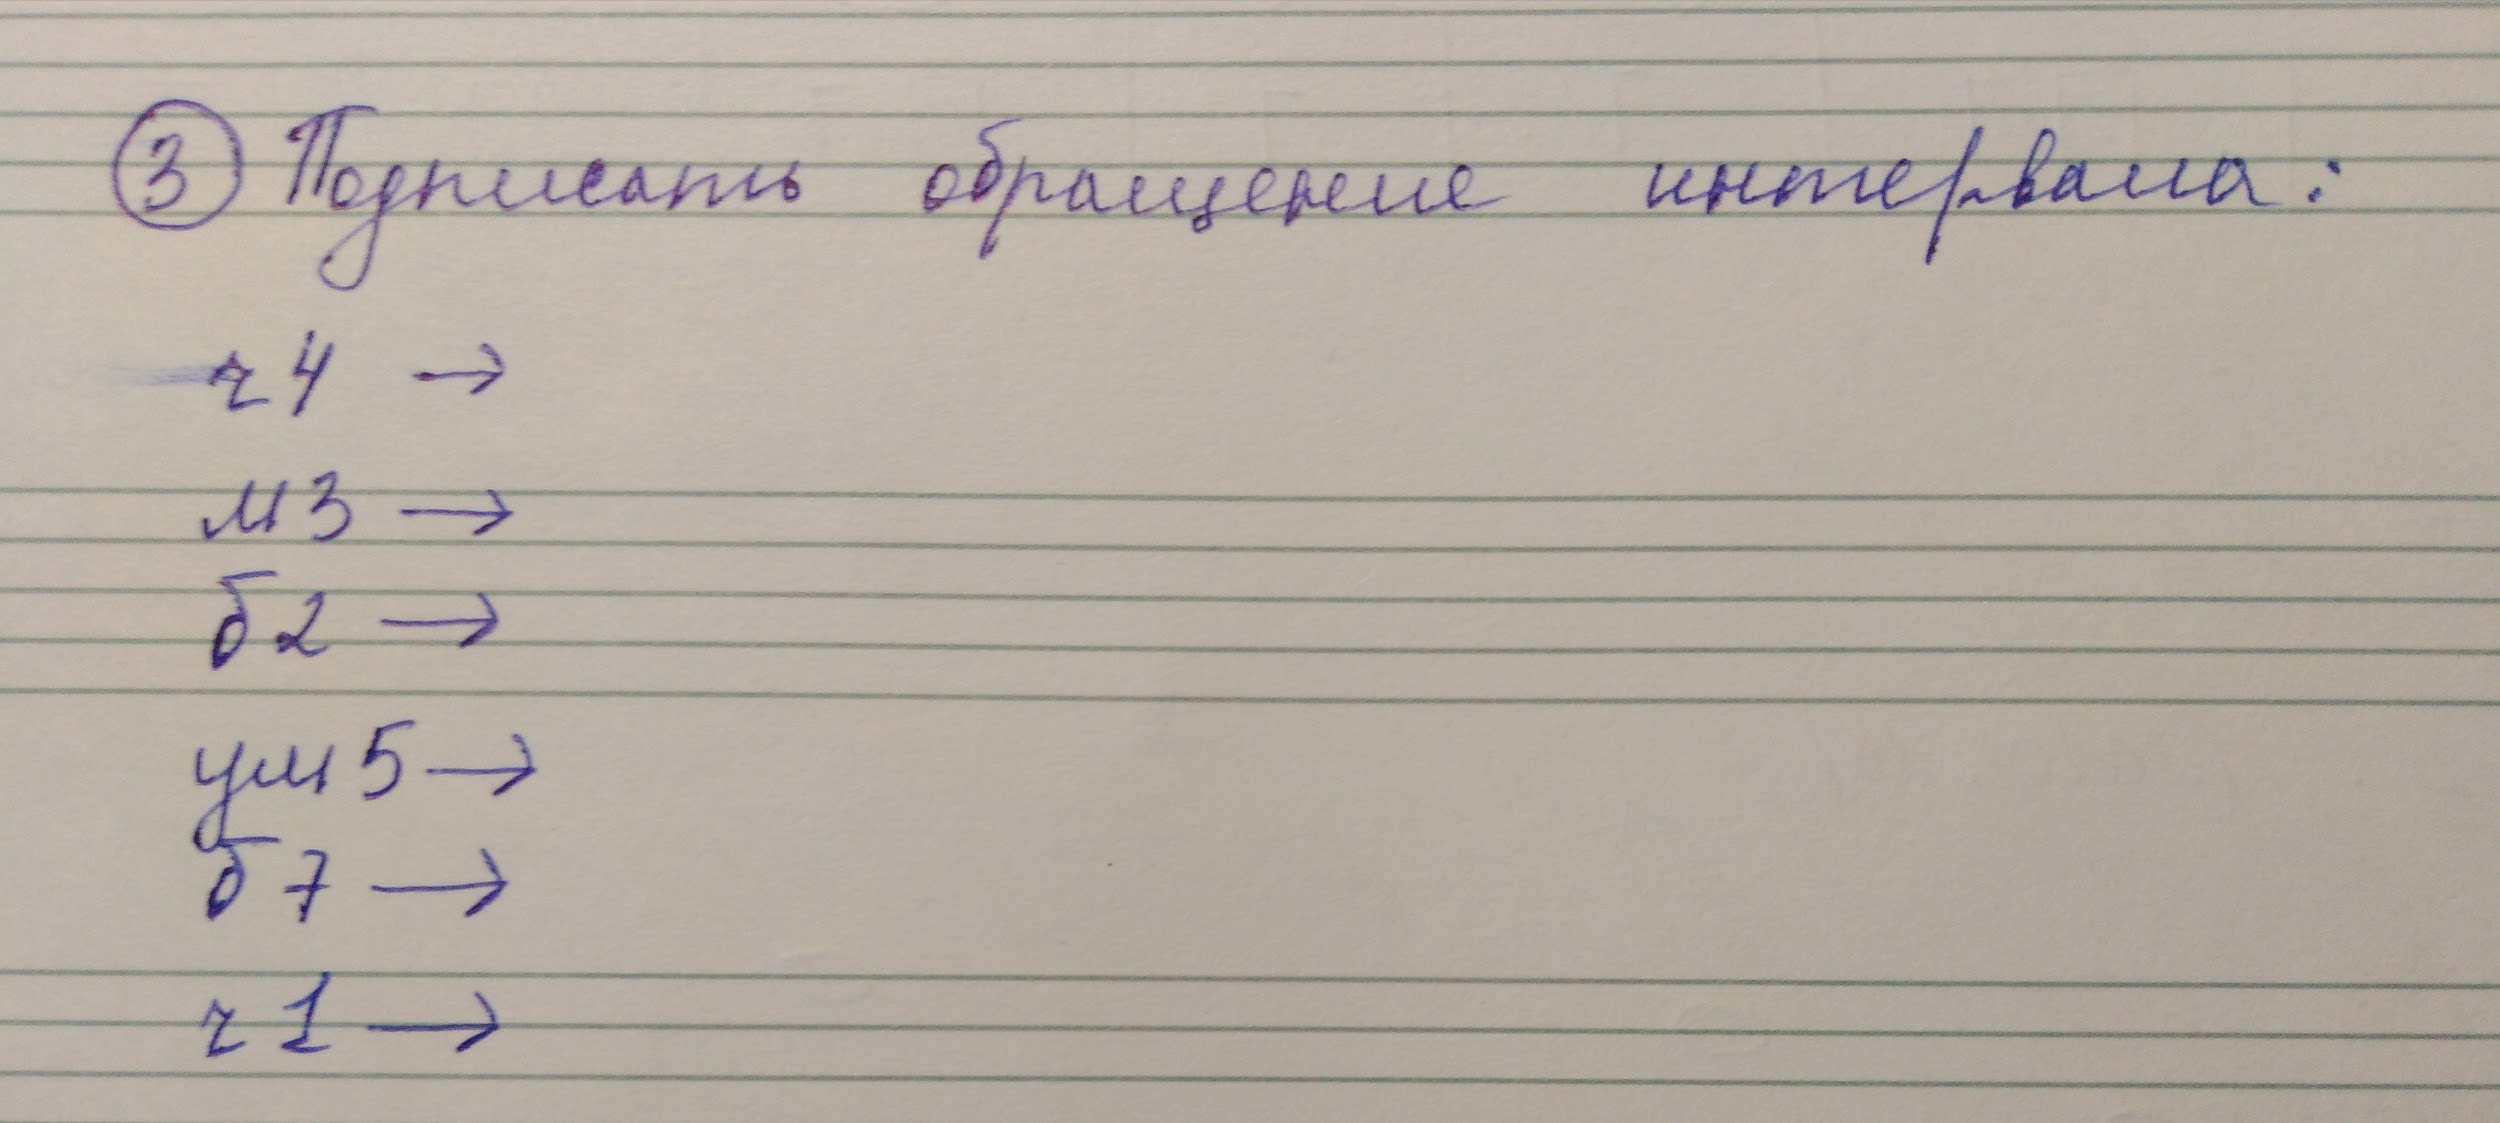 3 Подписать обращение интервала:
ч4 →
м3 →
б2 →
ум5 →
б7 →
ч1 →